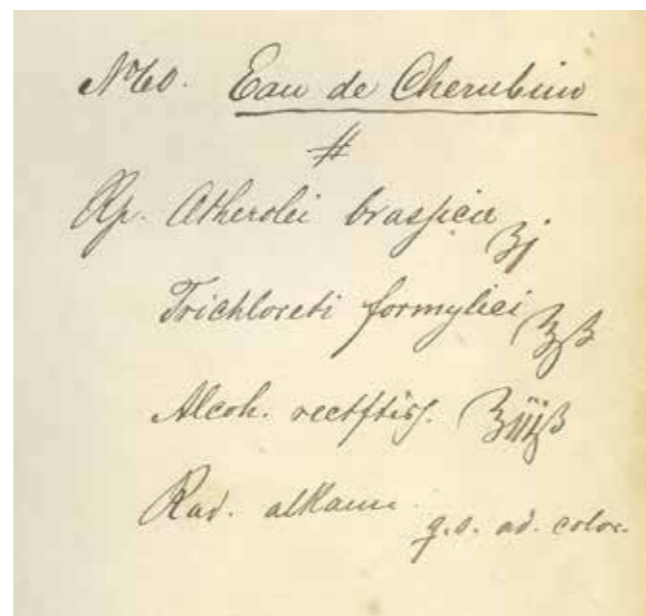 No 60. Eau de Cherubim
#
Rp. Atherolei brassicae ʒj
Trichloreti formylici ʒß
Alcoh. rectftiss. ʒiijß
Rad. alkann.
q.s. ad. color.